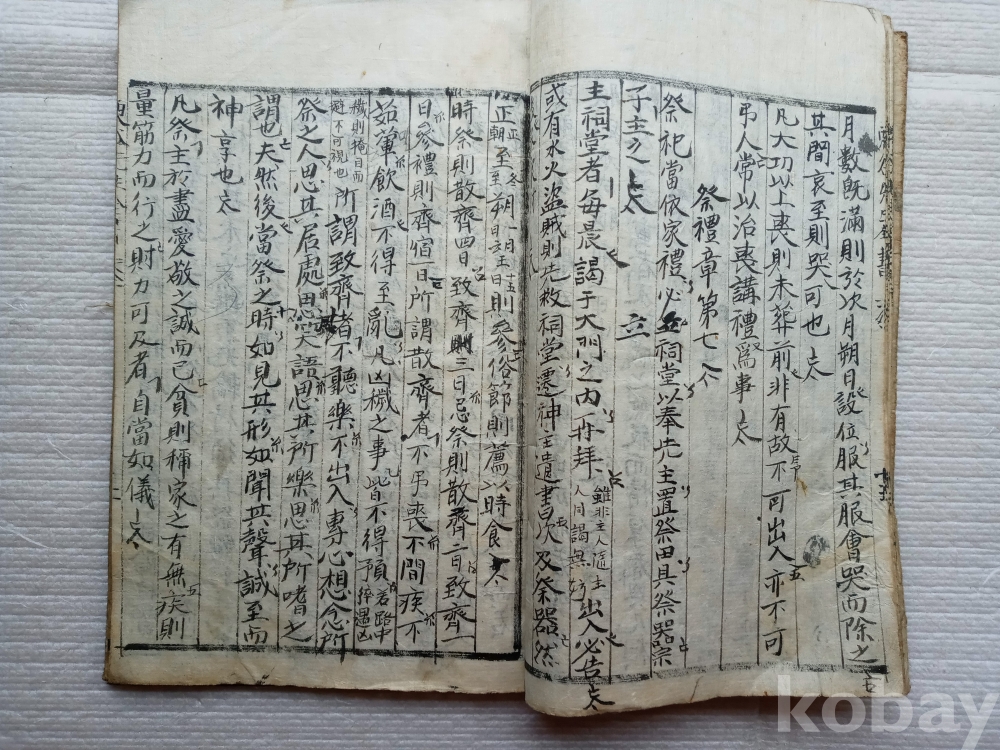 月數旣滿則於次月朔日設位服其服會哭而除之
其間哀至則哭可也
凡大功以上喪則未葬前非有故不可出入亦不可
吊人常以治喪講禮爲事
祭禮章第七
祭祀當依家禮必立祠堂以奉先主置祭田具祭器宗
子主之
主祠堂者每晨謁于大門之內再拜 雖非主人隨主人同謁無妨 出入必告
或有水火盜賊則先救祠堂遷神主遺書次及祭器然
正朝至朔 一日望 則參俗節則薦以時食
時祭則散齊四日致齊三日忌祭則散齊二日致齊一
日參禮則齊宿日所謂散齊者不弔喪不問疾不
茹葷飮酒不得至亂凡凶穢之事皆不得預 若路中猝遇凶
穢則掩目而避不可視也 所謂致齊者不聽樂不出入專心想念所
祭之人思其居處思笑語思其所樂思其所嗜之
謂也夫然後當祭之時如見其形如聞其聲誠至而
神享也
凡祭主於盡愛敬之誠而已貧則稱家之有無疾則
量筋力而行之財力可及者自當如儀
kobay